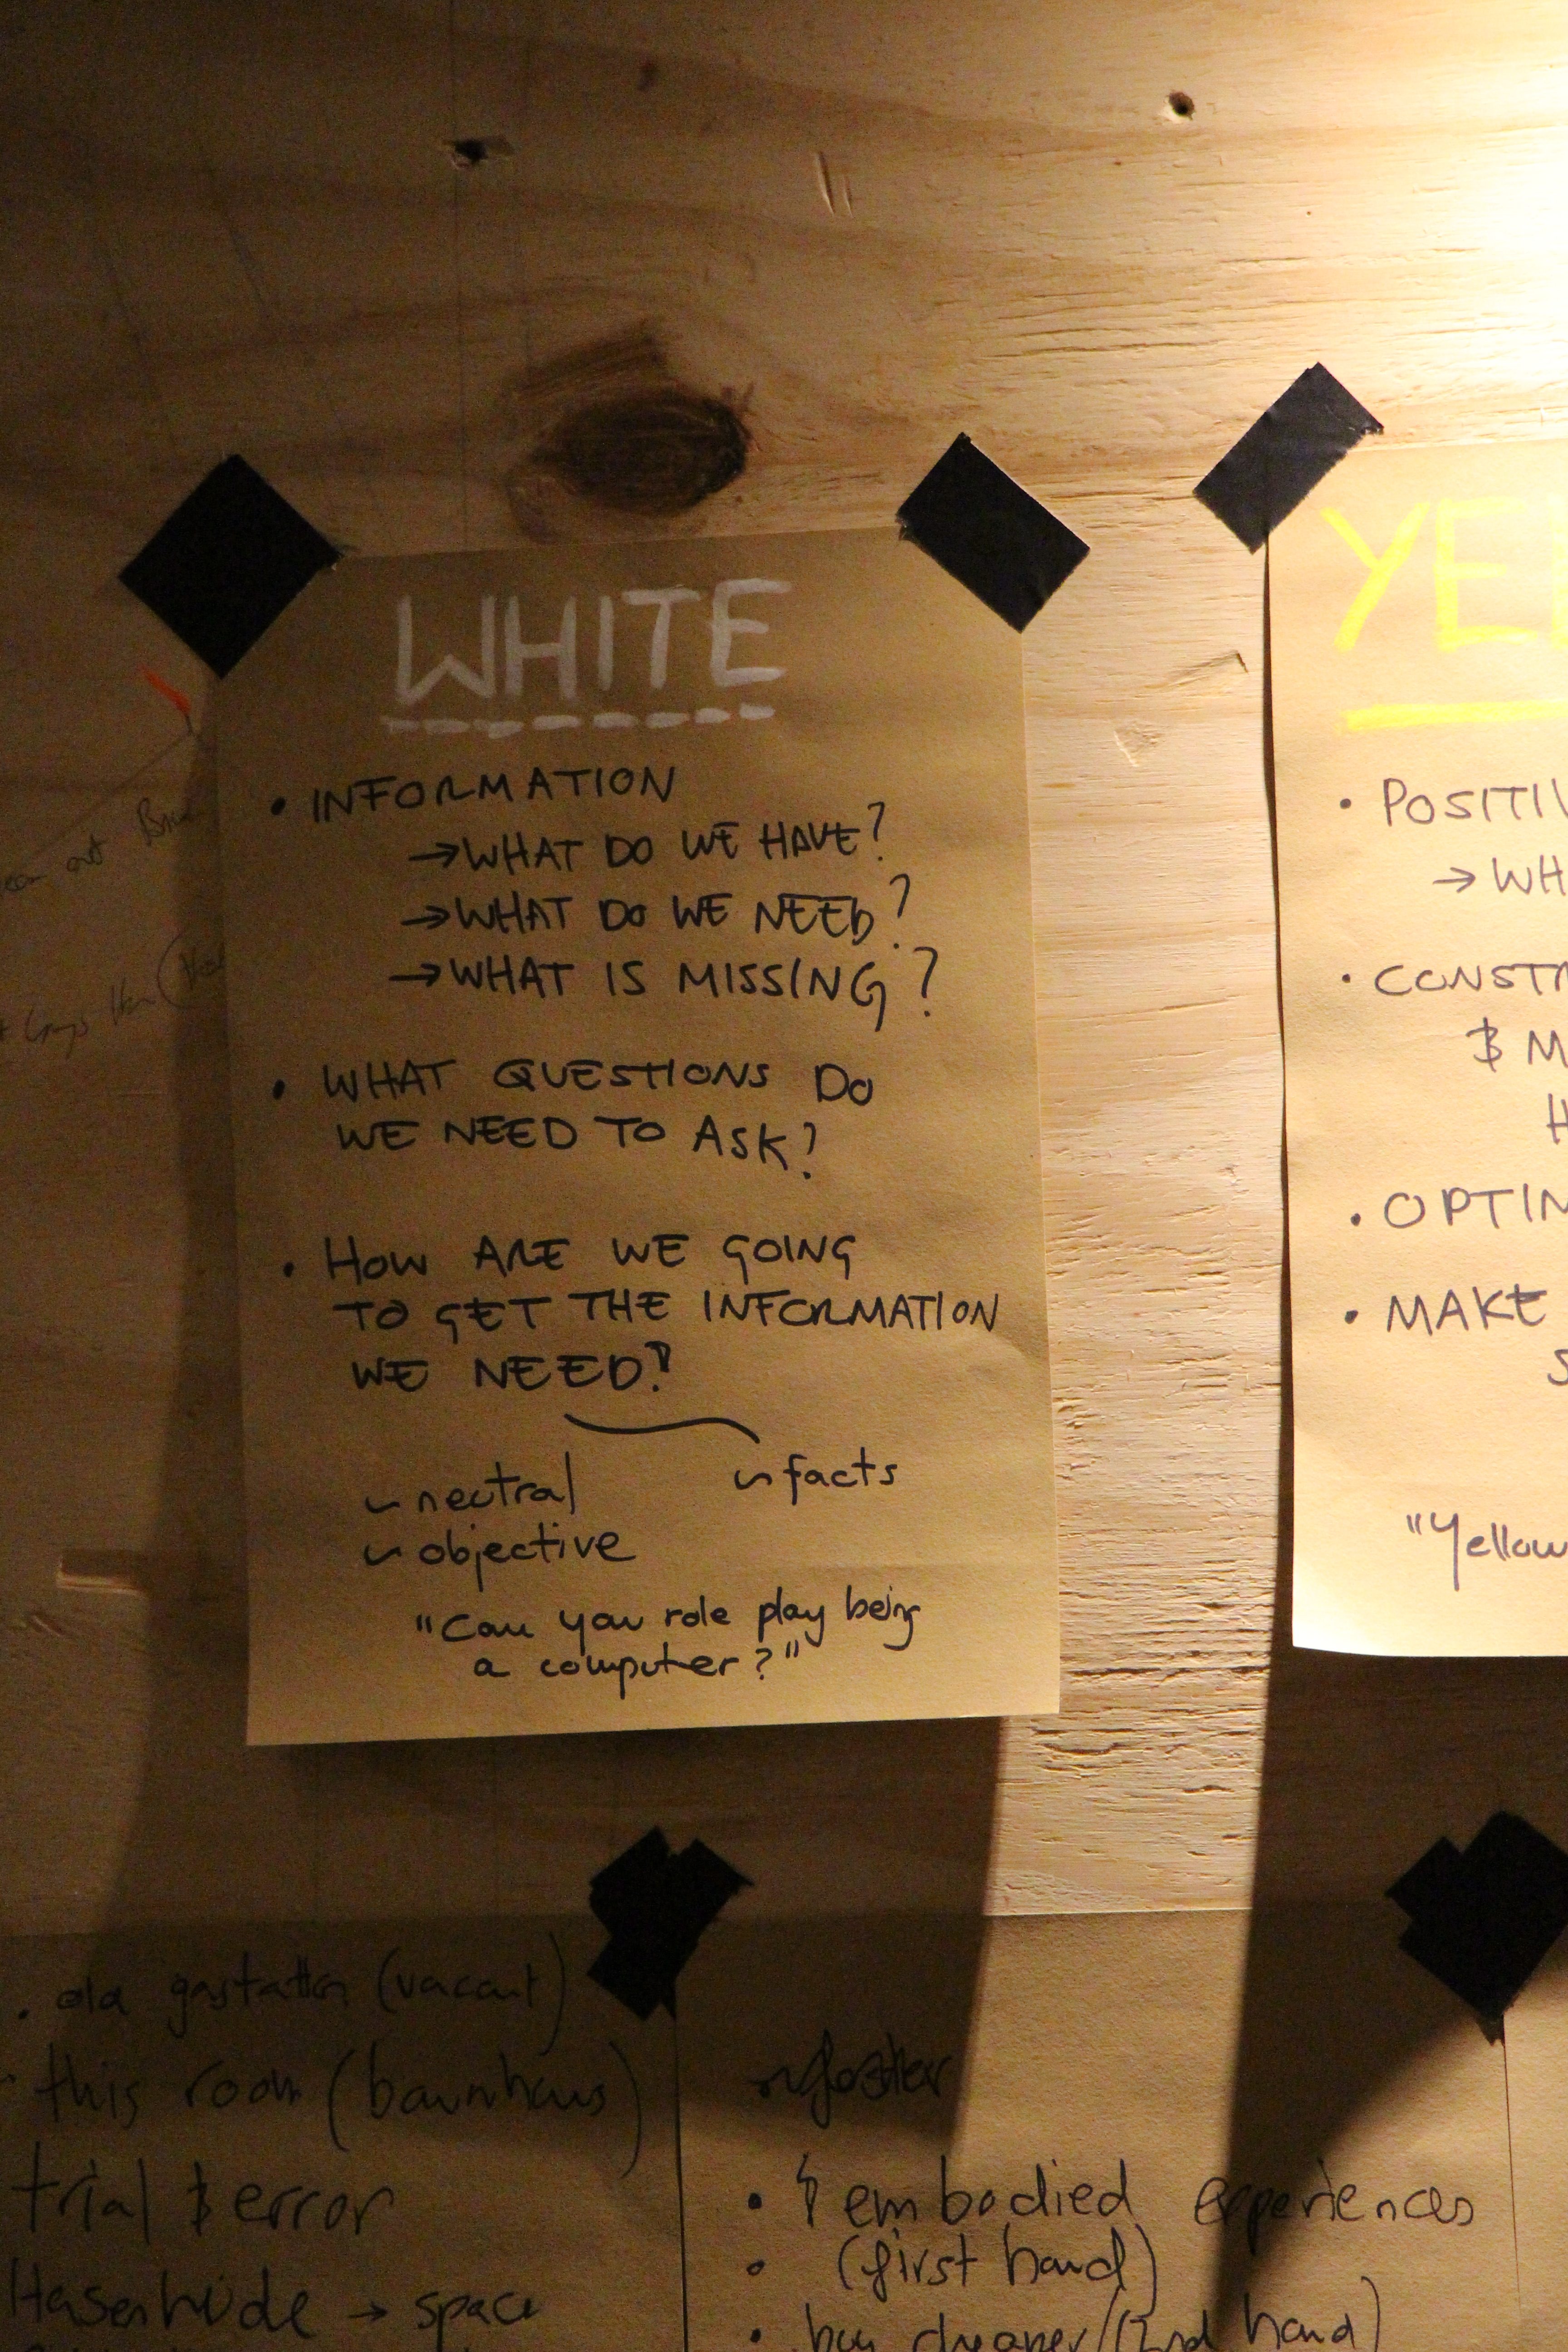 WHITE
• INFORMATION
→WHAT DO WE HAVE?
→WHAT DO WE NEED?
→WHAT IS MISSING?
• WHAT QUESTIONS DO
WE NEED TO ASK?
• HOW ARE WE GOING
TO GET THE INFORMATION
WE NEED?
neutral
objective
facts
"Can you role play being
a computer?"
YE
• POSITI
→ WH
• CONSTR
$ M
H
• OPTIM
• MAKE
S
"Yellow
(vacant)
this room (baumhaus)
trial & error
Hasenheide → space
• embodied experiences
• (first hand)
• buy cheaper/(2nd hand)
out